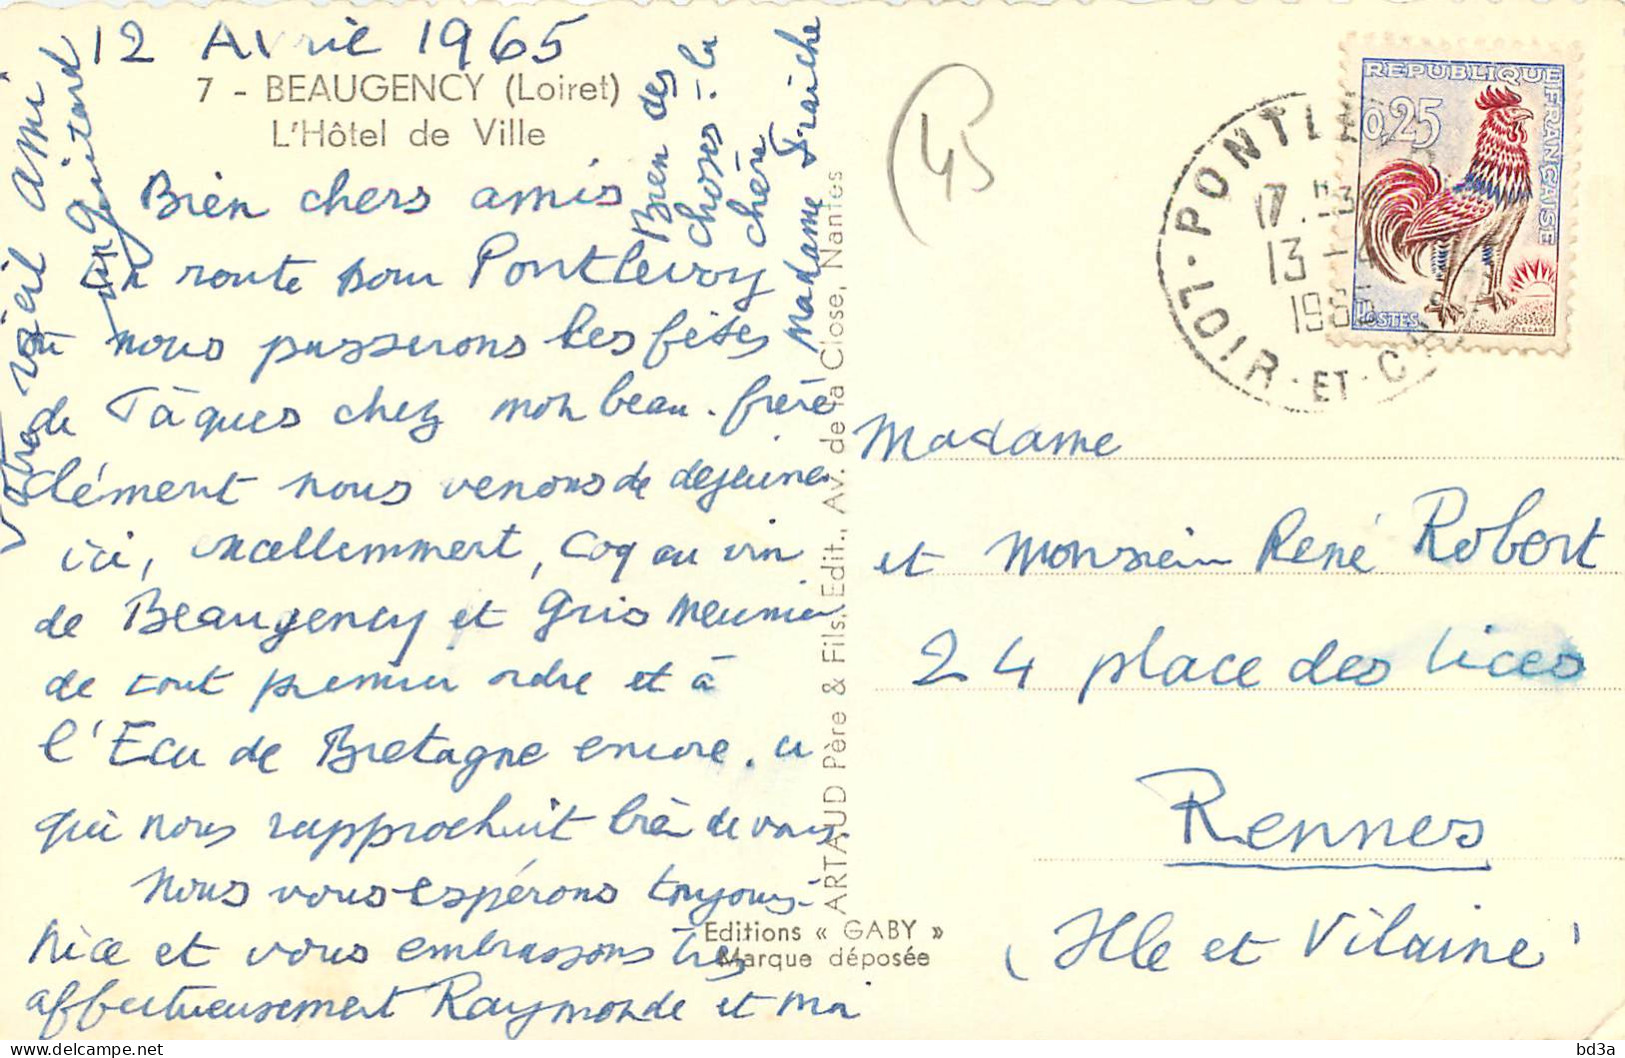 12 Avril 1965
7 - BEAUGENCY (Loiret)
L'Hôtel de Ville
Bien chers amis
En route pour Pontlevoy
où nous passerons les fêtes
de Pâques chez mon beau-frère
Clément nous venons de dejeuner
ici, excellemment, Coq au vin
de Beaugency et Gris Meunier
de tout premier ordre et à
l'Ecu de Bretagne encore. ce
qui nous rapprochait bien de vous
Nous vous espérons toujours à
Nice et vous embrassons très
affectueusement Raymonde et moi
Votre vieil ami
Guitard
Bien des
choses à la
chère
Madame Fraiche
ARTAUD Père & Fils, Edit., Av. de la Close, Nantes
Editions « GABY »
Marque déposée
45
PONTLEVOY
17 H
13 - 4
1965
LOIR-ET-CHER
REPUBLIQUE FRANÇAISE
0,25
POSTES
DECARIS
Madame
et Monsieur René Robert
24 place des Lices
Rennes
(Ille et Vilaine)
bd3a